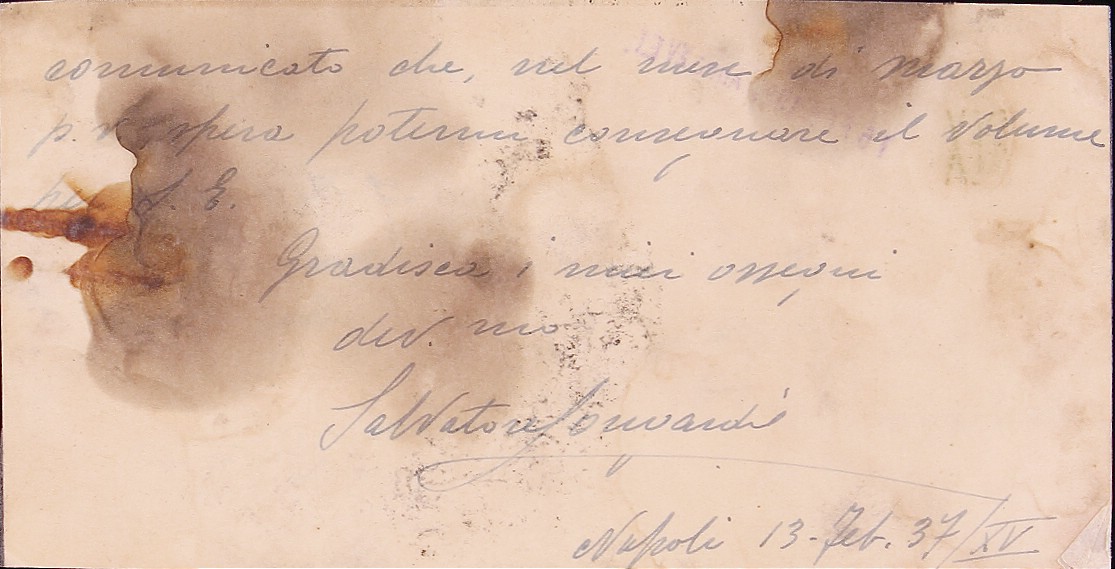 comunicato che, nel mese di marzo
p. v. spera potermi consegnare il volume
per S. E.
Gradisca i miei ossequi
dev. mo
Salvatore
Napoli 13-Feb. 37/XV